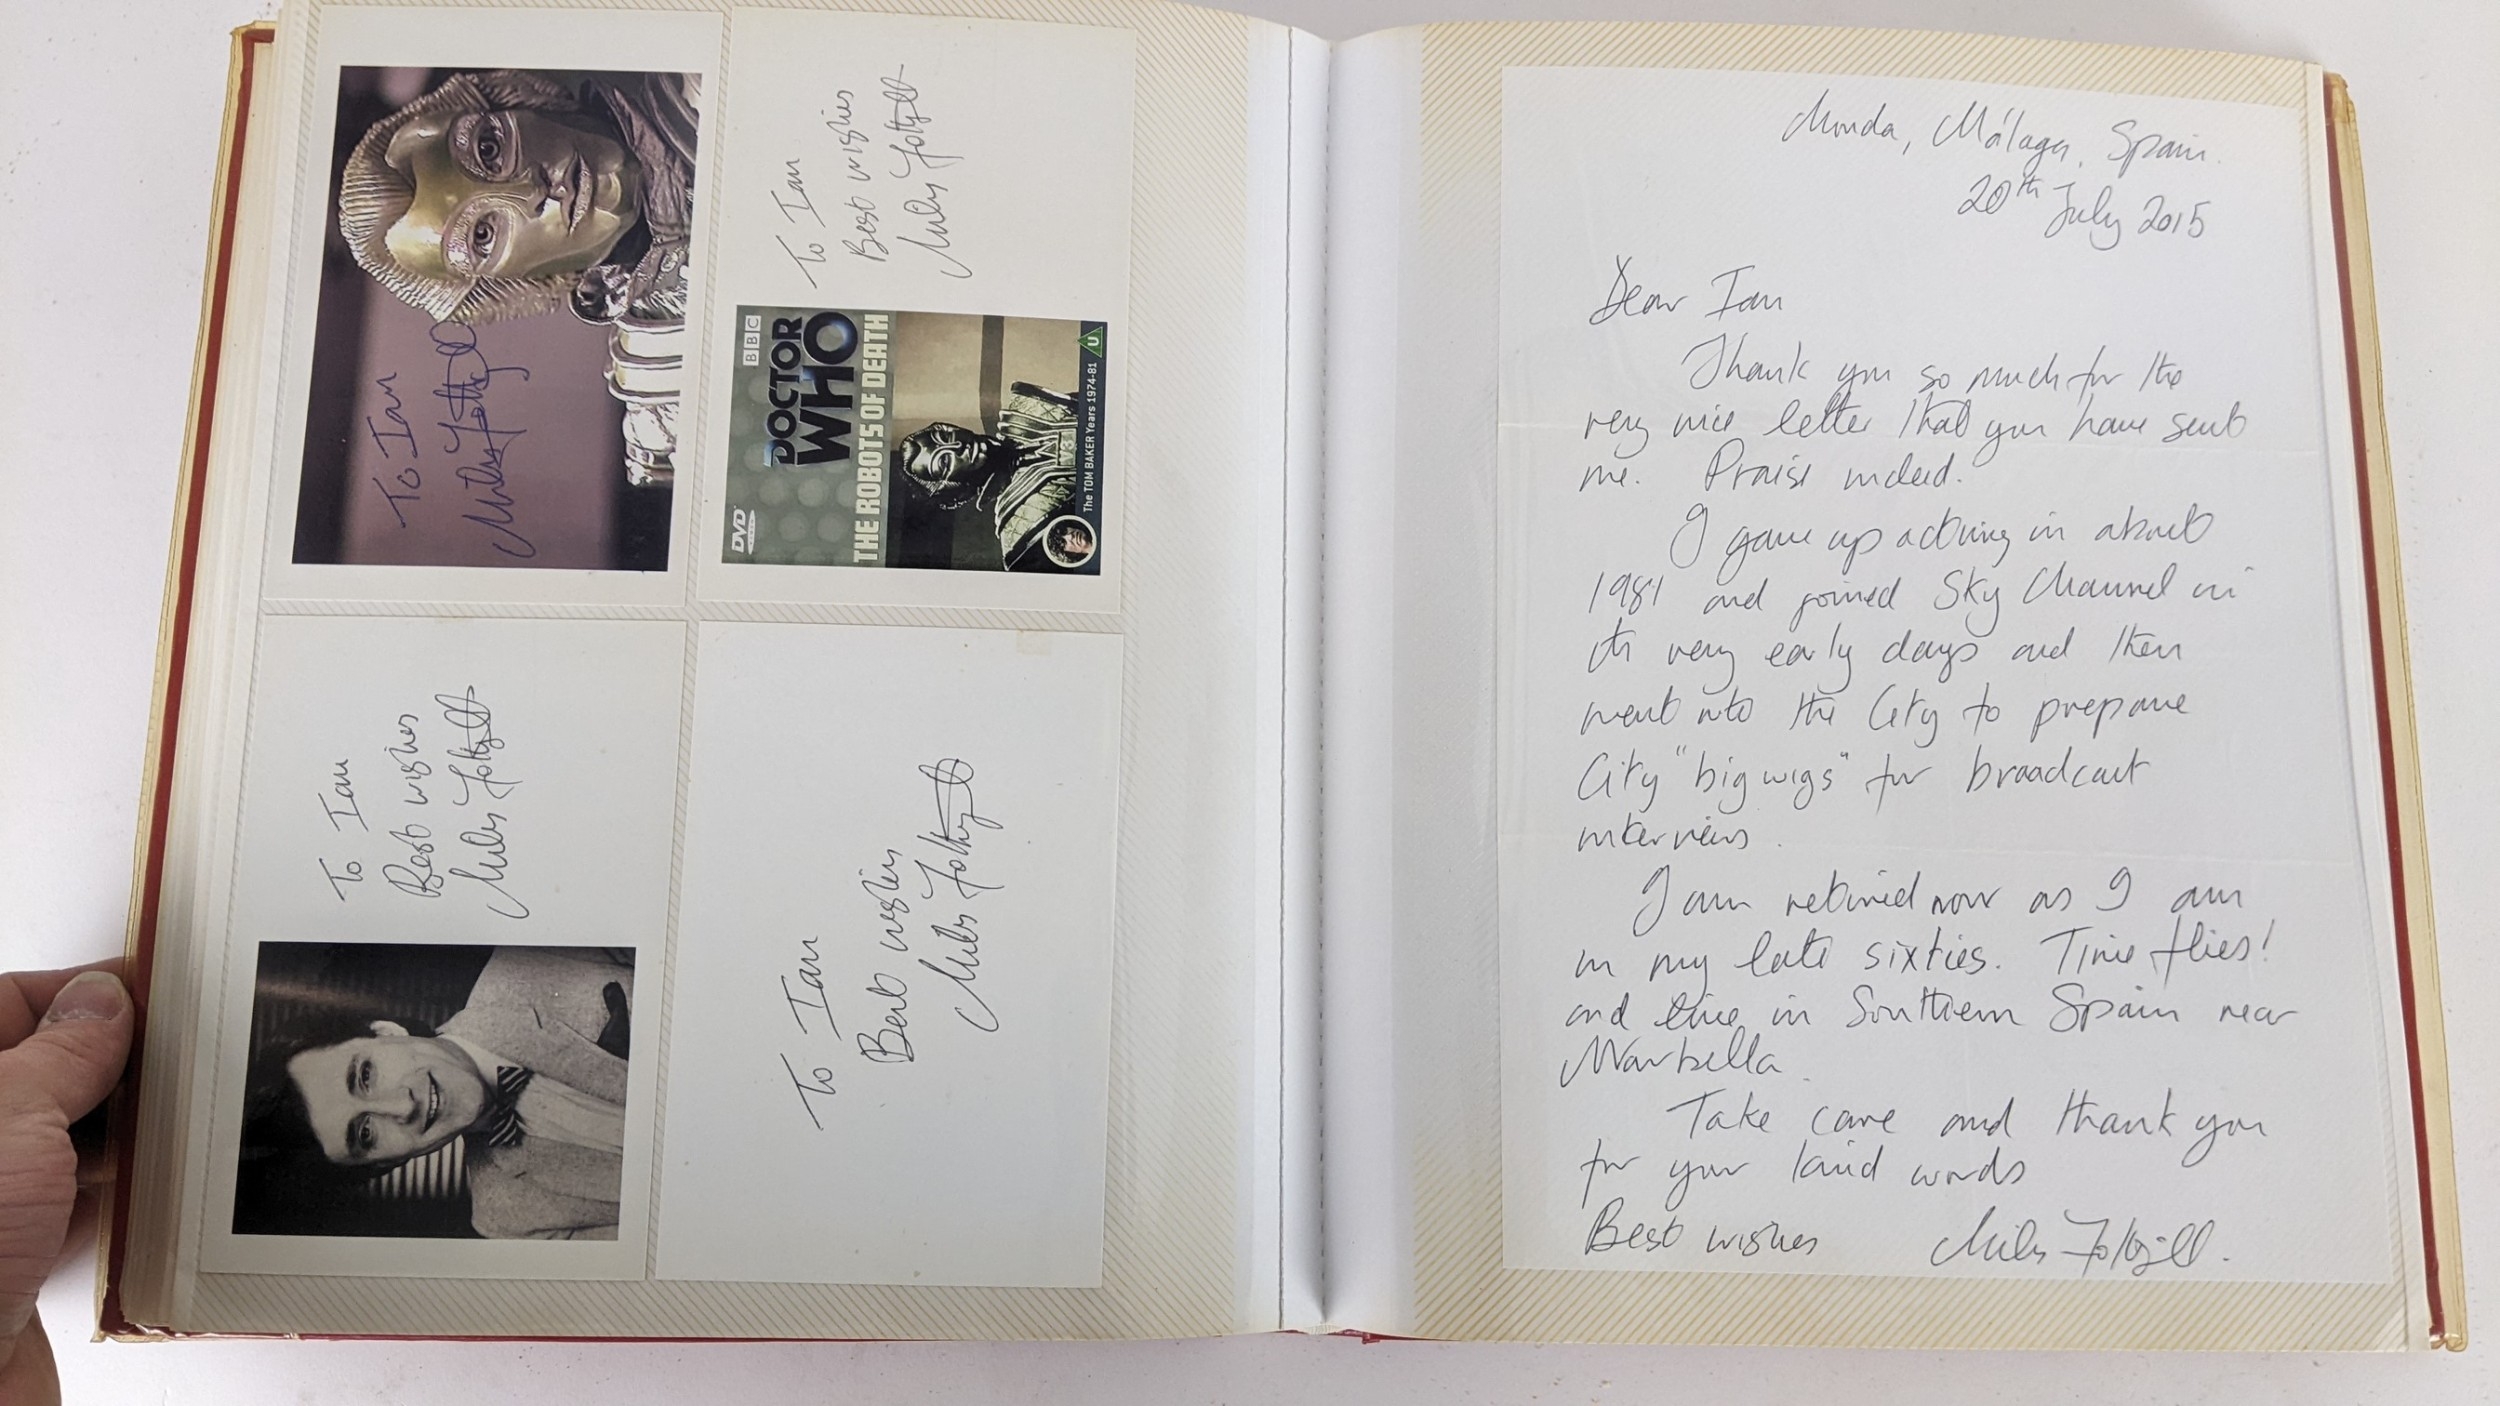 To Ian
Miles Fothergill
To Ian
Best wishes
Miles Fothergill
BBC
DOCTOR
WHO
THE ROBOTS OF DEATH
DVD
VIDEO
U
V3
The TOM BAKER Years 1974-81
To Ian
Best wishes
Miles Fothergill
To Ian
Best wishes
Miles Fothergill
Monda, Málaga, Spain.
20th July 2015
Dear Ian
Thank you so much for the
very nice letter that you have sent
me. Praise indeed.
I gave up acting in about
1981 and joined Sky Channel in
its very early days and then
went into the City to prepare
City "big wigs" for broadcast
interviews.
I am retired now as I am
in my late sixties. Time flies!
and live in Southern Spain near
Marbella.
Take care and thank you
for your kind words
Best wishes Miles Fothergill.